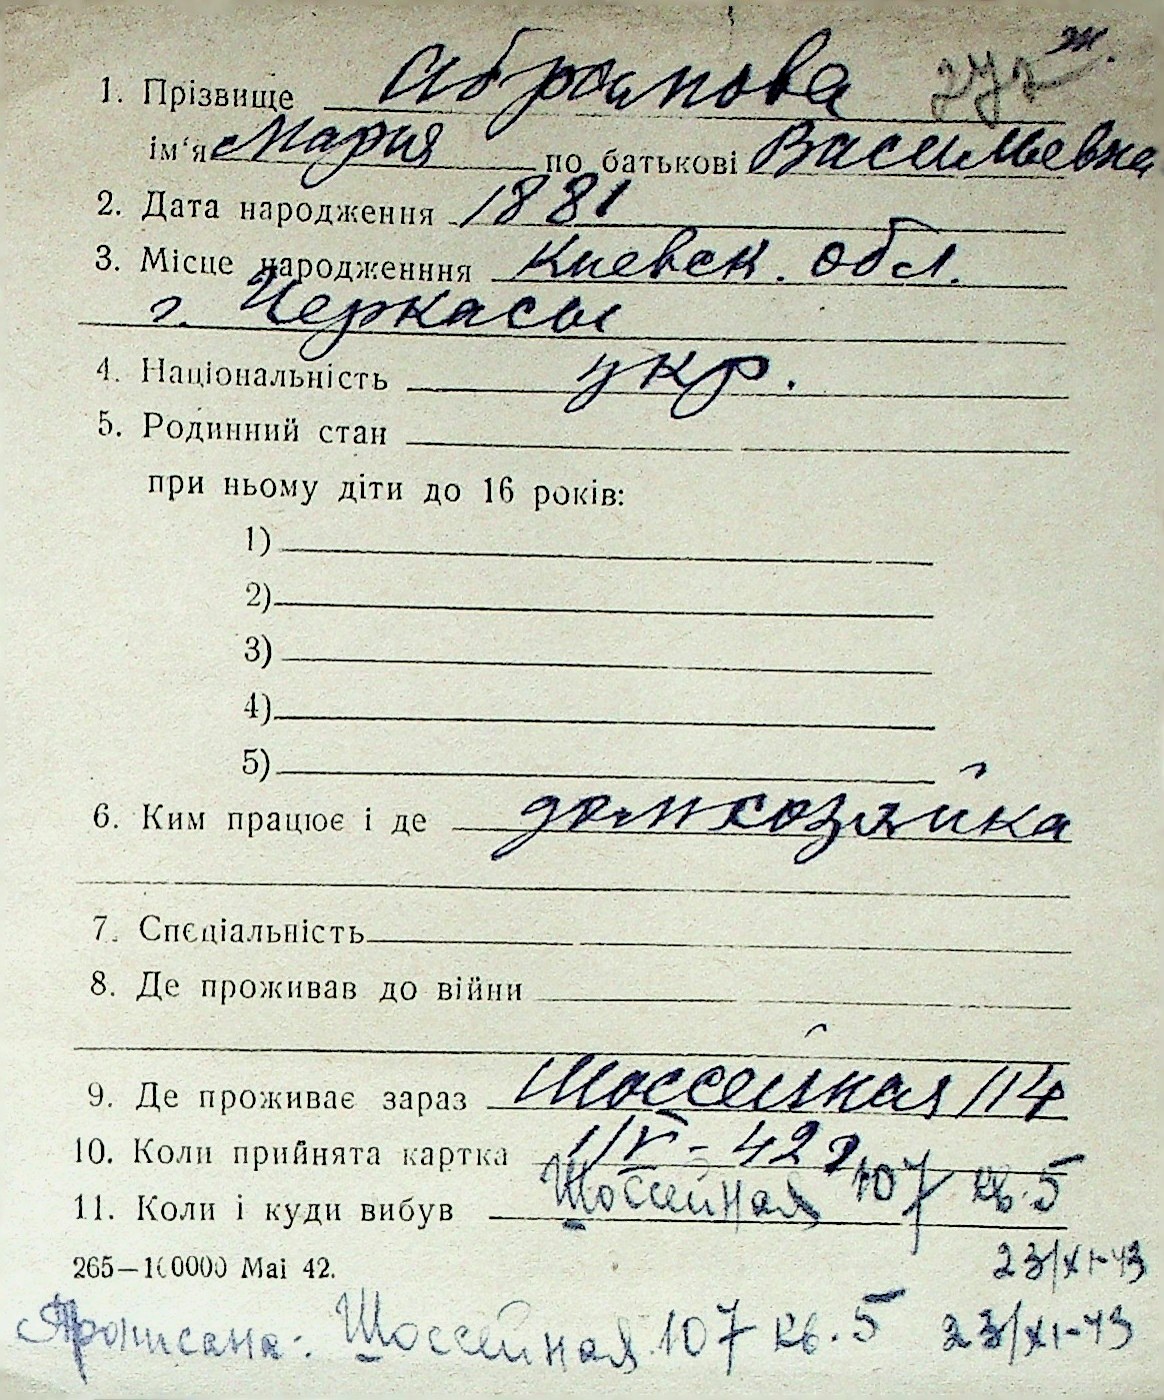 ж.
1. Прізвище Абрамова
ім'я Мария по батькові Васильевна
2. Дата народження 1881
3. Місце народженння Киевск. обл.
г. Черкасы
4. Національність укр.
5. Родинний стан
при ньому діти до 16 років:
1)
2)
3)
4)
5)
6. Ким працює і де домхозяйка
7. Спєціальність
8. Де проживав до війни
9. Де проживає зараз Шоссейная 114
10. Коли прийнята картка 1/V - 42 г
11. Коли і куди вибув Шоссейная 107 кв. 5
23/XI-43
265—100000 Mai 42.
Прописана: Шоссейная 107 кв. 5 23/XI-43